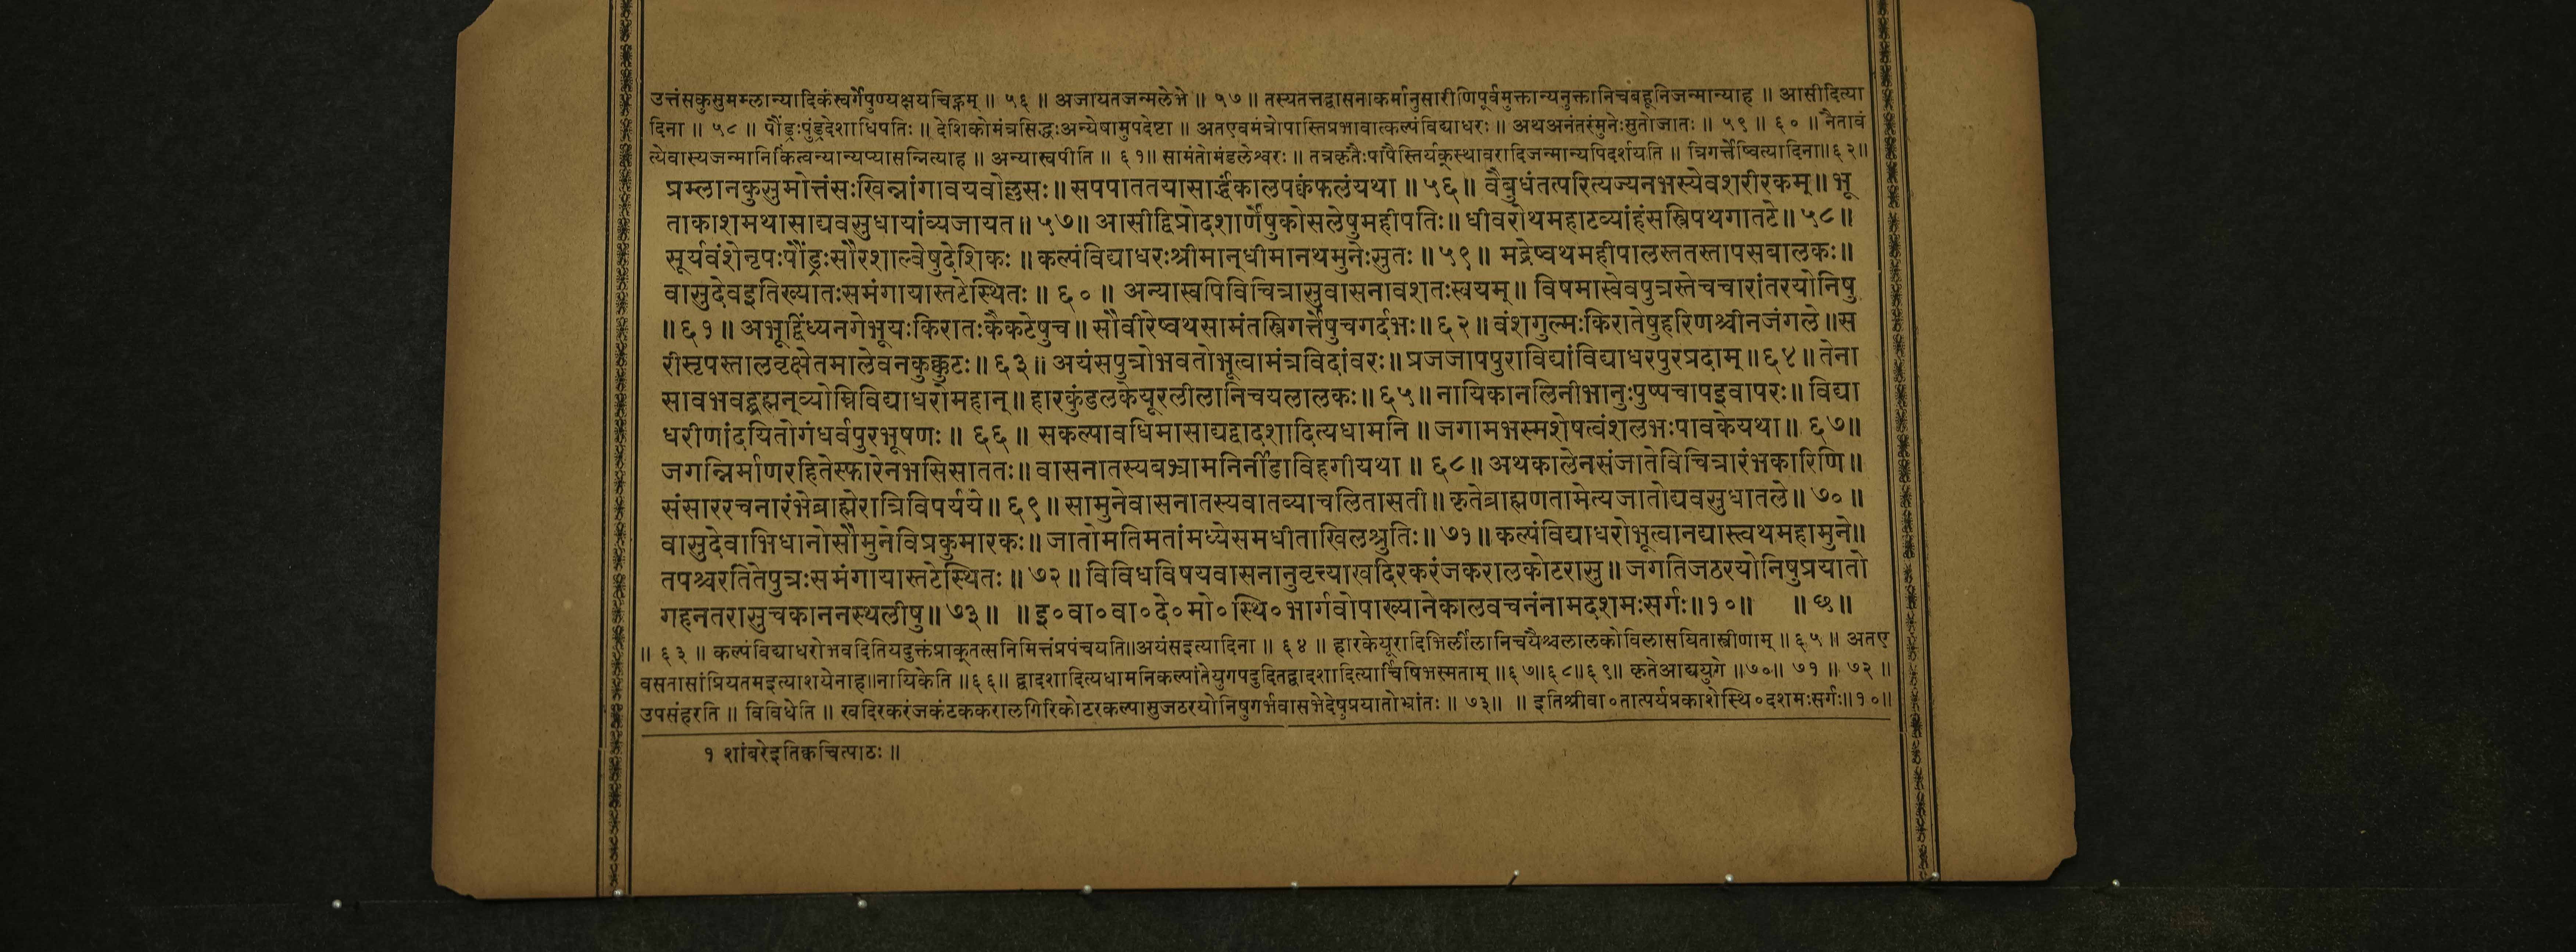 उत्तंसकुसुमम्लान्यादिकंस्वर्गेपुण्यक्षयचिह्नम् ॥ ५६ ॥ अजायतजन्मलेभे ॥ ५७ ॥ तस्यतत्तद्वासनाकर्मानुसारीणिपूर्वमुक्तान्यनुक्तानिचबहूनिजन्मान्याह ॥ आसीदित्या
दिना ॥ ५८ ॥ पौंड्रःपुंड्रदेशाधिपतिः ॥ देशिकोमंत्रसिद्धःअन्येषामुपदेष्टा ॥ अतएवमंत्रोपास्तिप्रभावात्कल्पंविद्याधरः ॥ अथअनंतरंमुनेःसुतोजातः ॥ ५९ ॥ ६० ॥ नैतावं
त्येवास्यजन्मानिकिंत्वन्यान्यप्यासन्नित्याह ॥ अन्यास्वपीति ॥ ६१॥ सामंतोमंडलेश्वरः ॥ तत्रकृतैःपापैस्तिर्यक्स्थावरादिजन्मान्यपिदर्शयति ॥ त्रिगर्त्तेष्वित्यादिना॥६२॥
प्रम्लानकुसुमोत्तंसःखिन्नांगावयवोल्लसः॥सपपाततयासार्द्धंकालपक्वंफलंयथा ॥५६॥ वैबुधंतत्परित्यज्यनभस्येवशरीरकम्॥भू
ताकाशमथासाद्यवसुधायांव्यजायत॥५७॥आसीद्विप्रोदशार्णेषुकोसलेषुमहीपतिः॥धीवरोथमहाटव्यांहंसस्त्रिपथगातटे॥५८॥
सूर्यवंशेनृपःपौंड्रःसौरशाल्वेषुदेशिकः ॥कल्पंविद्याधरःश्रीमान्धीमानथमुनेःसुतः ॥५९॥ मद्रेष्वथमहीपालस्ततस्तापसबालकः॥
वासुदेवइतिख्यातःसमंगायास्तटेस्थितः ॥ ६० ॥ अन्यास्वपिविचित्रासुवासनावशतःस्वयम्॥ विषमास्वेवपुत्रस्तेचचारांतरयोनिषु
॥६१॥ अभूद्विंध्यनगेभूयःकिरातःकैकटेषुच॥सौवीरेष्वथसामंतस्त्रिगर्त्तेषुचगर्दभः॥६२॥वंशगुल्मःकिरातेषुहरिणश्चीनजंगले॥स
रीसृपस्तालवृक्षेतमालेवनकुक्कुटः॥६३॥ अयंसपुत्रोभवतोभूत्वामंत्रविदांवरः॥प्रजजापपुराविद्यांविद्याधरपुरप्रदाम्॥६४॥तेना
सावभवद्ब्रह्मन्व्योम्निविद्याधरोमहान्॥हारकुंडलकेयूरलीलानिचयलालकः॥६५॥नायिकानलिनीभानुःपुष्पचापइवापरः॥ विद्या
धरीणांदयितोगंधर्वपुरभूषणः ॥ ६६ ॥ सकल्पावधिमासाद्यद्वादशादित्यधामनि ॥जगामभस्मशेषत्वंशलभःपावकेयथा॥ ६७॥
जगन्निर्माणरहितेस्फारेनभसिसाततः॥वासनातस्यबभ्रामनिर्नीडाविहगीयथा ॥ ६८॥अथकालेनसंजातेविचित्रारंभकारिणि॥
संसाररचनारंभेब्राह्मेरात्रिविपर्यये॥६९॥सामुनेवासनातस्यवातव्याचलितासती॥कृतेब्राह्मणतामेत्यजातोद्यवसुधातले॥ ७०॥
वासुदेवाभिधानोसौमुनेविप्रकुमारकः॥जातोमतिमतांमध्येसमधीताखिलश्रुतिः॥७१॥कल्पंविद्याधरोभूत्वानद्यास्त्वथमहामुने॥
तपश्चरतितेपुत्रःसमंगायास्तटेस्थितः॥७२॥विविधविषयवासनानुवृत्त्याखदिरकरंजकरालकोटरासु॥जगतिजठरयोनिषुप्रयातो
गहनतरासुचकाननस्थलीषु॥७३॥ ॥इ०वा०वा०दे०मो०स्थि०भार्गवोपाख्यानेकालवचनंनामदशमःसर्गः॥१०॥ ॥छ॥
॥ ६३ ॥ कल्पंविद्याधरोभवदितियदुक्तंप्राक्तत्सनिमित्तंप्रपंचयति॥अयंसइत्यादिना ॥ ६४ ॥ हारकेयूरादिभिर्लीलानिचयैश्चलालकोविलासयितास्त्रीणाम् ॥६५॥ अतए
वसतासांप्रियतमइत्याशयेनाह॥नायिकेति ॥६६॥ द्वादशादित्यधामनिकल्पांतेयुगपदुदितद्वादशादित्यार्चिषिभस्मताम् ॥६७॥६८॥६९॥ कृतेआद्ययुगे ॥७०॥ ७१ ॥ ७२ ॥
उपसंहरति ॥ विविधेति ॥ खदिरकरंजकंटककरालगिरिकोटरकल्पासुजठरयोनिषुगर्भवासभेदेषुप्रयातोभ्रांतः ॥ ७३॥ ॥ इतिश्रीवा०तात्पर्यप्रकाशेस्थि०दशमःसर्गः॥१०॥
१ शांबरेइतिक्वचित्पाठः ॥